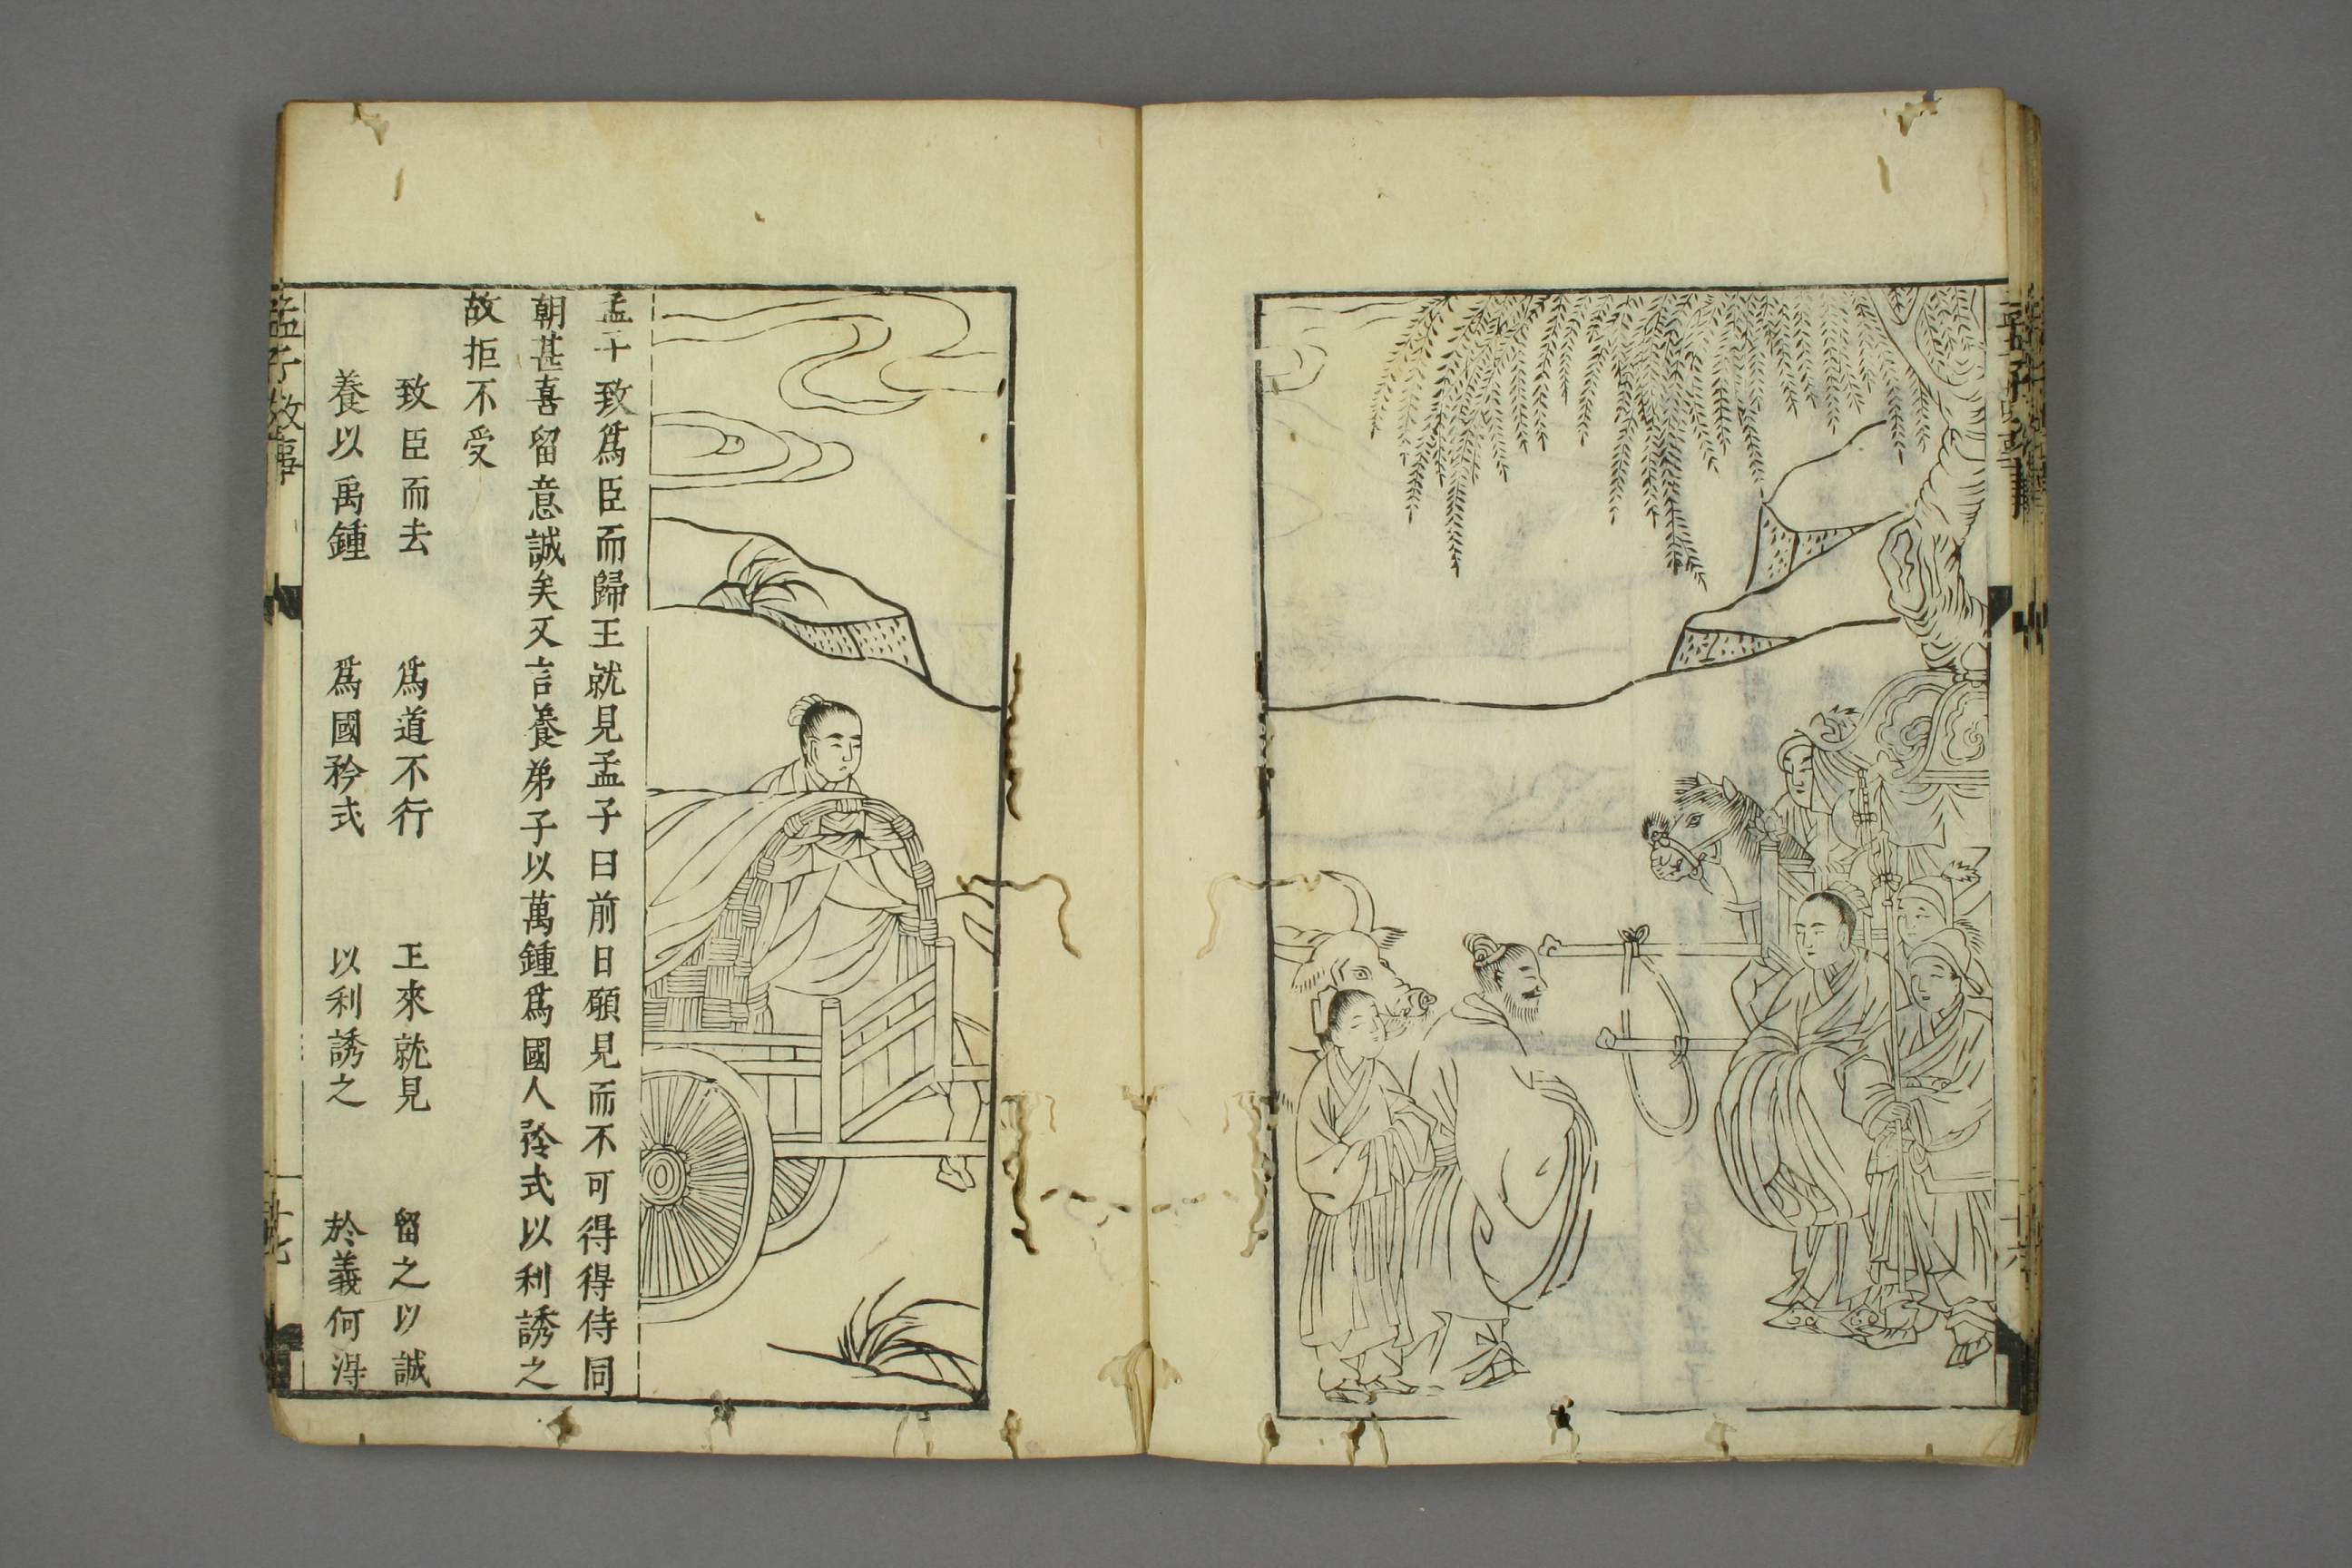 孟子致爲臣而歸王就見孟子曰前日願見而不可得得侍同
朝甚喜留意誠矣又言養弟子以萬鍾爲國人矜式以利誘之
故拒不受
致臣而去　爲道不行　王來就見　留之以誠
養以禹鍾　爲國矜式　以利誘之　於義何淂
孟子故事
十七